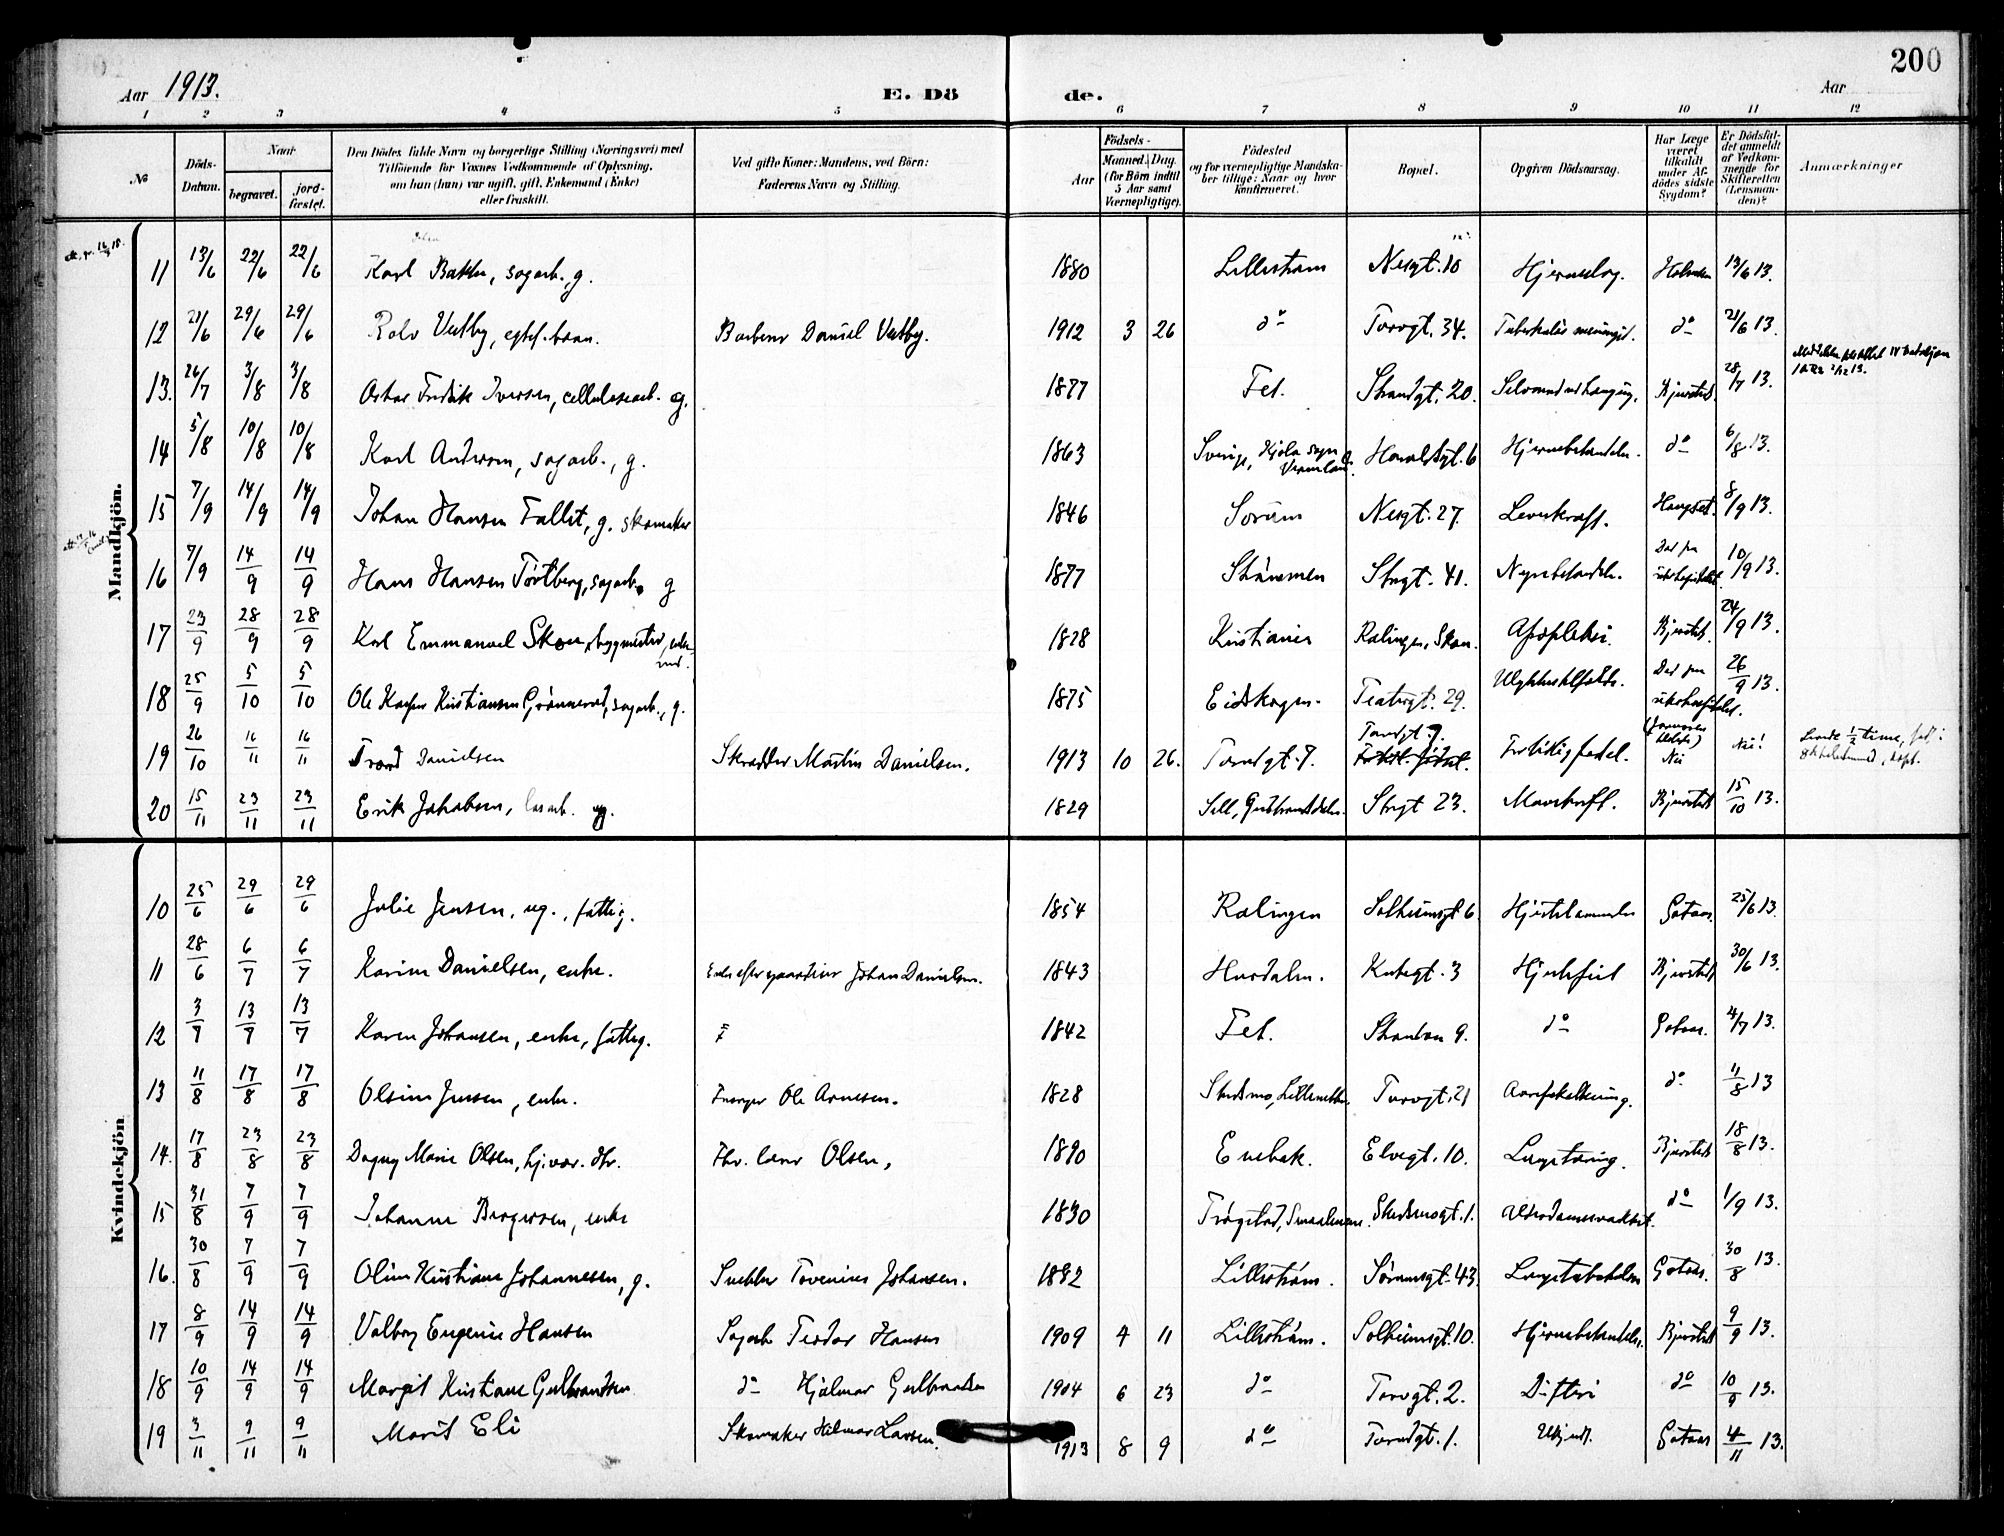 200
Aar 1913.
E. Dö de.
Aar
1 2 3 4 5 6 7 8 9 10 11 12
№
Döds-Datum.
Naar
begravet.
jord-fæstet.
Den Dödes fulde Navn og borgerlige Stilling (Næringsvei) med
Tilföiende for Voxnes Vedkommende af Oplysning,
om han (hun) var ugift, gift, Enkemand (Enke)
eller fraskilt.
Ved gifte Koner: Mandens, ved Börn:
Faderens Navn og Stilling.
Födsels-
Aar
Maaned. Dag.
(for Börn indtil
5 Aar samt
Værnepligtige).
Födested
og for værnepligtige Mandska-
ber tillige: Naar og hvor
konfirmeret.
Bopæl.
Opgiven Dödsaarsag.
Har Læge
været
tilkaldt
under Af-
dödes sidste
Sygdom?
Er Dödsfal-
det anmeldt
af Vedkom-
mende for
Skifteretten
(Lensman-
den)?
Anmærkninger
Mandkjön.
11 13/6 22/6 22/6 Karl sagarb., g. 1880 Lilleström Nesgt. 10 Hjerneslag. Holmsen 13/6 13.
12 21/6 29/6 29/6 Rolv Vestby, egtef. barn. Barberer Daniel Vestby. 1912 3 26 do Torvgt. 34. Tuberkuløs meningit. do 21/6 13.
13. 26/7 3/8 3/8 Oskar Fredrik Iversen, cellulosearb. g. 1877 Fet. Strandgt. 20. Selvmord ved hængning. Bjerstedt. 28/7 13.
14 5/8 10/8 10/8 Karl Anderson, sagarb., g. 1863 Sverige, sogn Vermland. Haraldsgt. 6 Hjernebetændelse. do 6/8 13.
15 7/9 14/9 14/9 Johan Hansen Fallet, g. skomaker 1846 Sörum Nesgt. 27. Leverkræft. Haugset. 8/9 13.
16 7/9 14/9 14/9 Hans Hansen Törtberg, sagarb. g 1877 Strömmen Strgt. 41. Nyrebetændelse. Död paa rikshospitalet 10/9 13.
17 23/9 28/9 28/9 Karl Emmanuel Skou, bygmester, enkemd. 1828 Kristiania Rælingen, Skou. Apopleksi. Bjerstedt. 24/9 13.
18 25/9 5/10 5/10 Ole Kasper Kristiansen Grönnerud, sagarb., g. 1875 Eidskogen. Teatergt. 29. Ulykkestilfælde. Död paa rikshospitalet. 26/9 13.
19 26/10 16/11 16/11 Trond Danielsen Skrædder Martin Danielsen. 1913 10 26. Torvdgt. 7. Torvdgt 7. For tidlig fødsel. (Jonasens attest) Nei Nei! Levde 1/2 time,
20 15/11 23/11 23/11 Erik Jakobsen, løsarb. ug. 1829 Sell, Gudbrandsdalen. Strgt 23. Mavekræft. Bjerstedt 15/10 13.
Kvindekjön
10 25/6 29/6 29/6 Julie Jensen, ug., fattig. 1854 Rælingen Solheimsgt 6 Hjertelammelse Gotaas. 25/6 13.
11 28/6 6/7 6/7 Karine Danielsen, enke. Enke efter gaardeier Johan Danielsen. 1843 Hurdalen. Kirkegt. 3 Hjertefeil Bjerstedt 30/6 13.
12 3/7 13/7 13/7 Karen Johansen, enke, fattig. ? 1842 Fet. Skansen 9. do Gotaas. 4/7 13.
13 11/8 17/8 17/8 Olsine Jensen, enke. Ole Arnesen. 1828 Skedsmo, Torvgt. 21 Aareforkalkning. do 11/8 13
14. 17/8 23/8 23/8 Dagny Marie Olsen, hj.vær. dtr. Fhv. lærer Olsen, 1890 Enebak. Elvegt. 10. Lungetæring. Bjerstedt 18/8 13.
15 31/8 7/9 7/9 Johanne Bergersen, enke 1830 Trögstad, Smaalenene. Skedsmogt. 1. Alderdomssvakhet. do 1/9 13.
16. 30/8 7/9 7/9 Oline Kristiane Johannesen, g. Snekker Johansen. 1892 Lilleström. Sörumsgt. 43. Lungetuberkulose Gotaas. 30/8 13.
17 8/9 14/9 14/9 Valborg Eugenie Hansen Sagarb. Teodor Hansen 1909 4 11 Lilleström. Solheimsgt. 10. Hjernebetændelse. Bjerstedt 9/9 13.
18 10/9 14/9 14/9 Margit Kristiane Gulbrandsen do Hjalmar Gulbrandsen 1904 6 23 do Torvgt. 2. Difteri do 10/9 13.
19 3/11 9/11 9/11 Marit Eli Skomaker Hilmar Larsen. 1913 8 9 do Torvdgt. 1. Ukjendt. Gotaas 4/11 13.